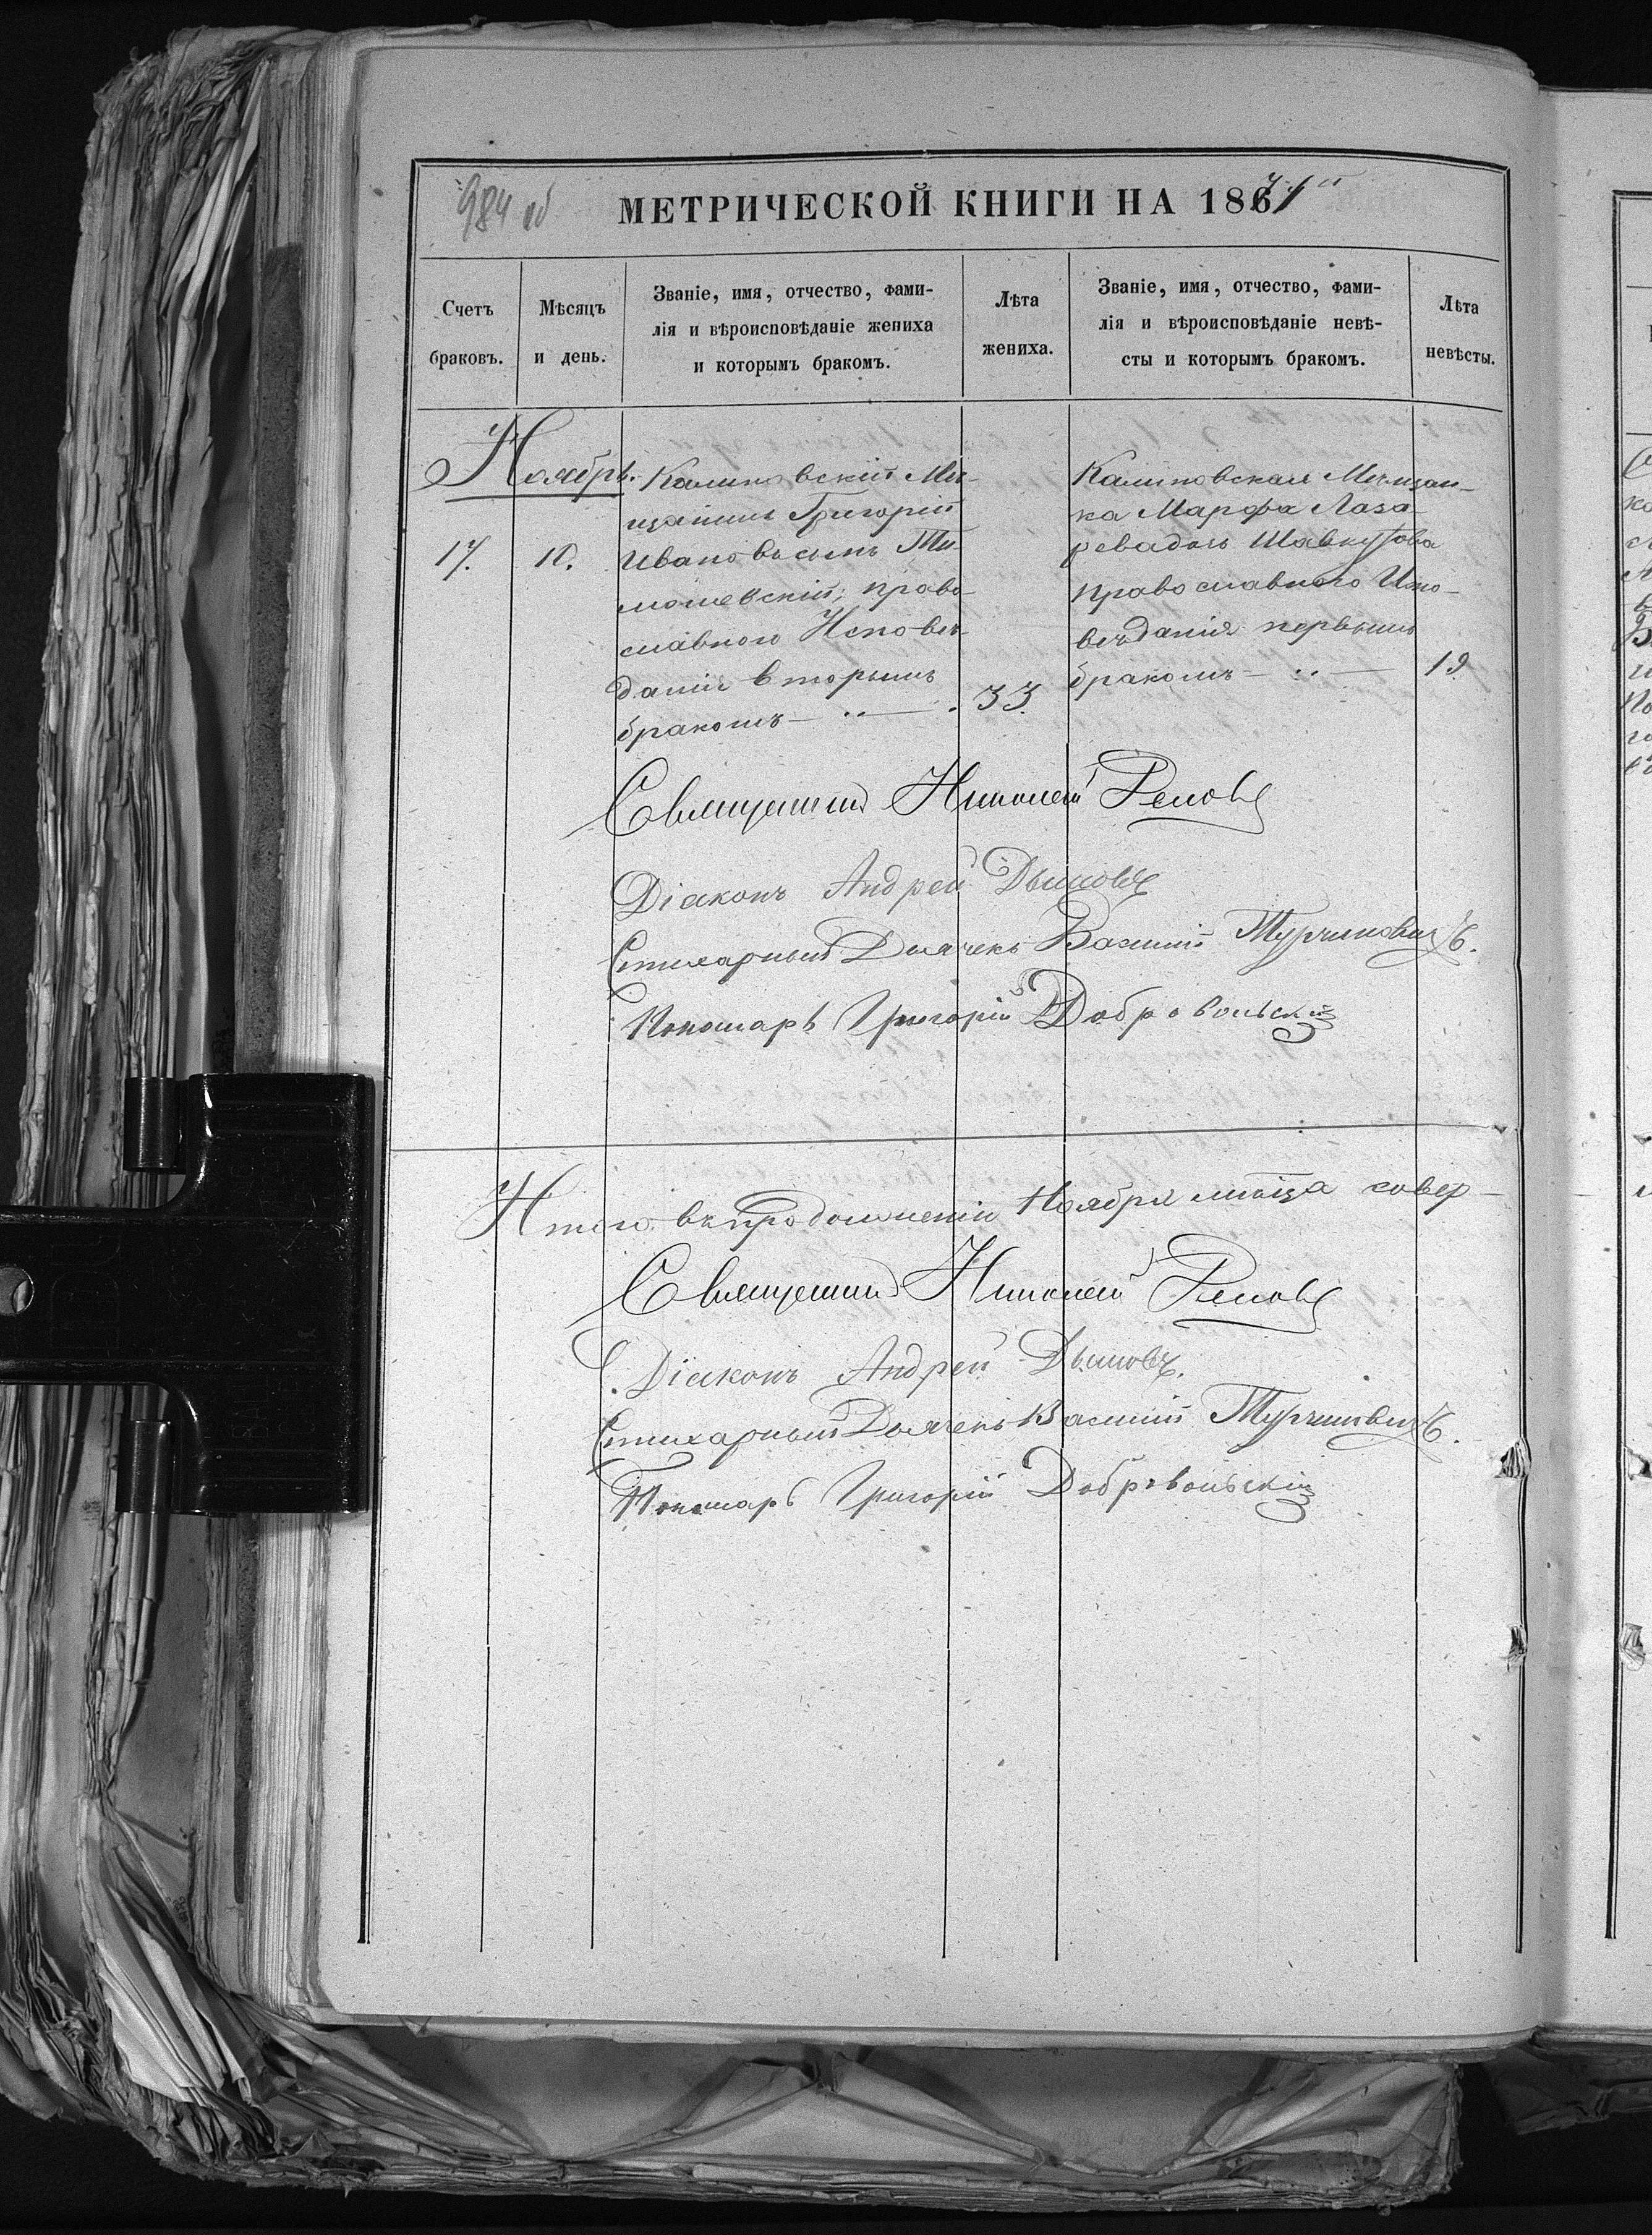 984 об
МЕТРИЧЕСКОЙ КНИГИ НА 1871
Счетъ браковъ.
Мѣсяцъ и день.
Званіе, имя, отчество, фами-
лія и вѣроисповѣданіе жениха
и которымъ бракомъ.
Лѣта
жениха.
Званіе, имя, отчество, фами-
лія и вѣроисповѣданіе невѣ-
сты и которымъ бракомъ.
Лѣта
невѣсты.
Ноябрь.
17.
10.
Калиновскій Мѣ-
щанинъ Григорій
Ивановъ сынъ Ти-
мошевскій; право-
славного Исповѣ-
данія вторымъ
бракомъ
33.
Калиновская Мѣщан-
ка Марфа Лаза-
рева дочь
православного Испо-
вѣданія первымъ
бракомъ
19
Священникъ Николай
Діаконъ Андрей Дымовъ
Стихарный Дьячекъ Василій Турчиновичъ.
Пономарь Григорій Добровольскій
Итого въ продолженіи Ноября мѣсяца совер-
Священникъ Николай
Діаконъ Андрей Дымовъ.
Стихарный Дьячекъ Василій Турчиновичъ.
Пономарь Григорій Добровольскій